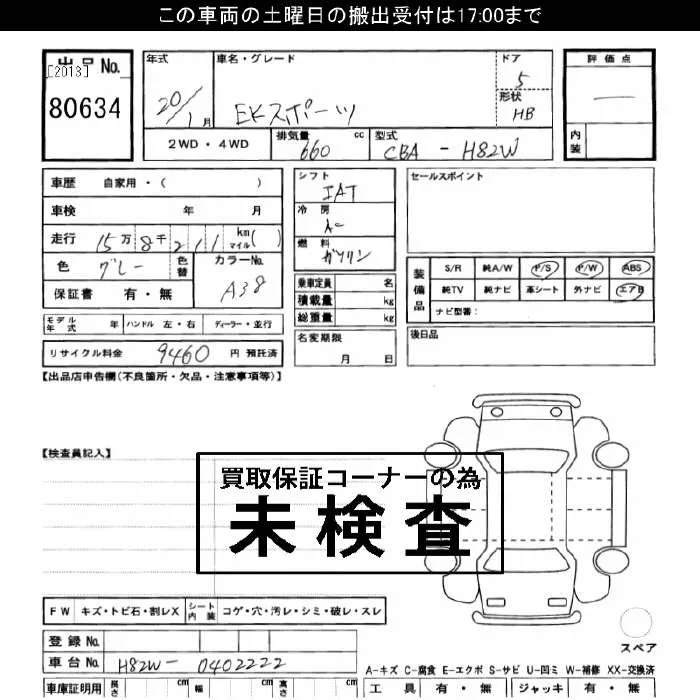 この車両の土曜日の搬出受付は17:00まで
出品No.
[2013]
80634
年式
20/1月
車名・グレード
EKスポーツ
ドア
5
形状
HB
評価点
—
内装
2WD・4WD
排気量
660 cc
型式
CBA - H82W
車歴 自家用・( )
車検 年 月
走行 15万8千211 km マイル( )
色 グレー 色替
カラーNo.
A38
保証書 有・無
モデル年式 年 ハンドル 左・右 ディーラー・並行
リサイクル料金 9460 円 預託済
シフト
IAT
冷房
燃料
ガソリン
乗車定員 名
積載量 kg
総重量 kg
名変期限
月 日
セールスポイント
装備品
S/R 純A/W P/S P/W ABS
純TV 純ナビ 革シート 外ナビ エアB
ナビ型番:
後日品
【出品店申告欄(不良箇所・欠品・注意事項等)】
【検査員記入】
買取保証コーナーの為
未検査
FW キズ・トビ石・割レX シート内装 コゲ・穴・汚レ・シミ・破レ・スレ
登録No.
車台No. H82W- 0402222
車庫証明用 長さ cm 幅 cm 高さ cm
スペア
A-キズ C-腐食 E-エクボ S-サビ U-凹ミ W-補修 XX-交換済
工具 有・無 ジャッキ 有・無